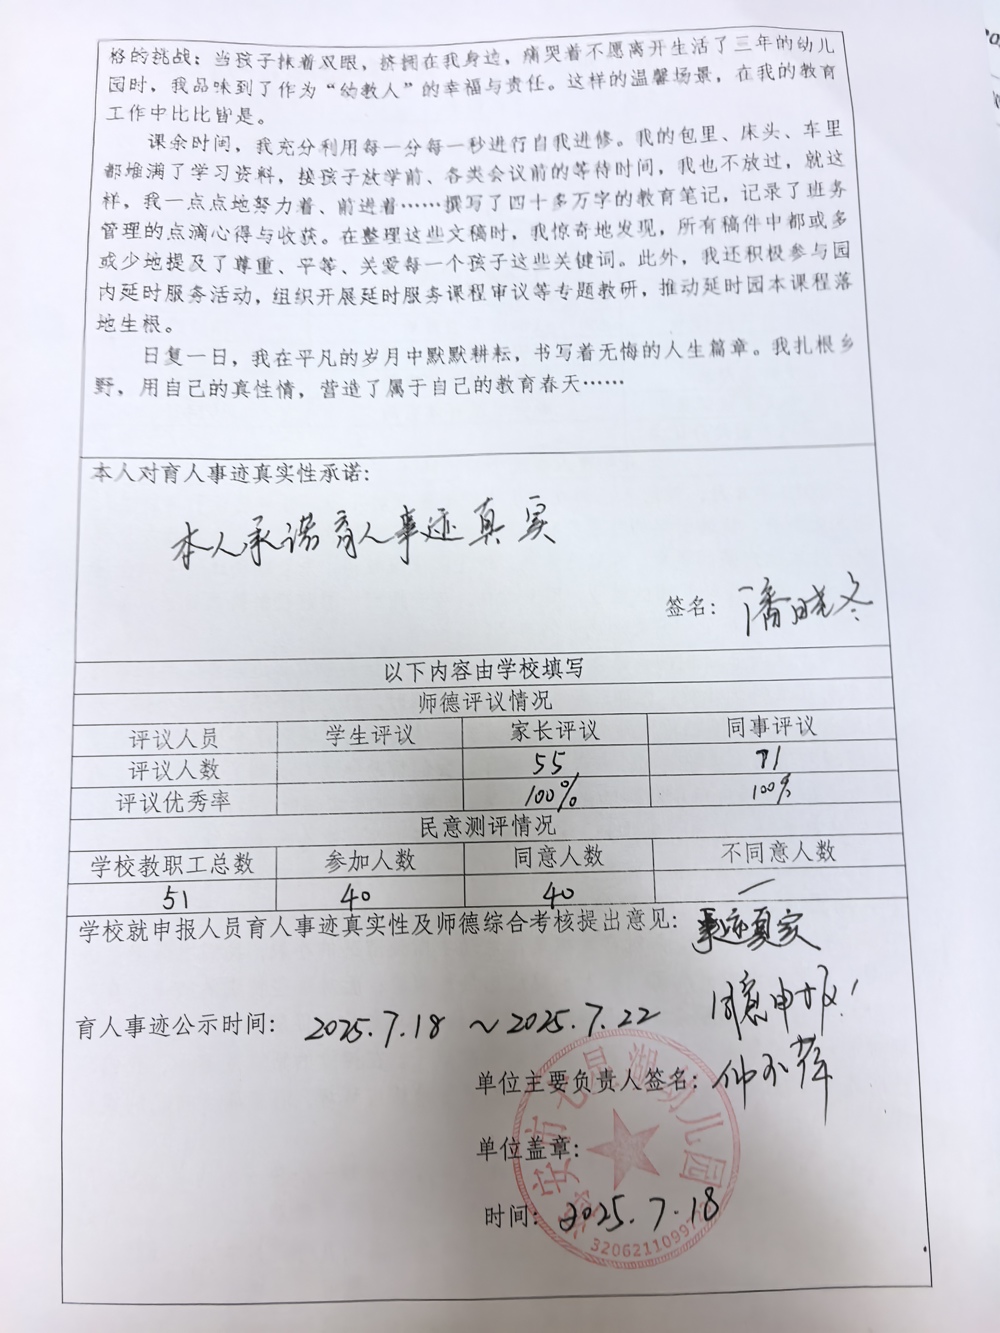 格的挑战：当孩子抹着双眼，挤拥在我身边，痛哭着不愿离开生活了三年的幼儿
园时，我品味到了作为“幼教人”的幸福与责任。这样的温馨场景，在我的教育
工作中比比皆是。
课余时间，我充分利用每一分每一秒进行自我进修。我的包里、床头、车里
都堆满了学习资料，接孩子放学前、各类会议前的等待时间，我也不放过，就这
样，我一点点地努力着、前进着……撰写了四十多万字的教育笔记，记录了班务
管理的点滴心得与收获。在整理这些文稿时，我惊奇地发现，所有稿件中都或多
或少地提及了尊重、平等、关爱每一个孩子这些关键词。此外，我还积极参与园
内延时服务活动，组织开展延时服务课程审议等专题教研，推动延时园本课程落
地生根。
日复一日，我在平凡的岁月中默默耕耘，书写着无悔的人生篇章。我扎根乡
野，用自己的真性情，营造了属于自己的教育春天……
本人对育人事迹真实性承诺：
本人承诺育人事迹真实
签名：潘晓冬
以下内容由学校填写
师德评议情况
评议人员 学生评议 家长评议 同事评议
评议人数 55
评议优秀率 100% 100%
民意测评情况
学校教职工总数 参加人数 同意人数 不同意人数
51 40 40 —
学校就申报人员育人事迹真实性及师德综合考核提出意见：事迹真实
同意申报！
育人事迹公示时间：2025.7.18 ～2025.7.22
单位主要负责人签名：仲
单位盖章：
时间：2025.7.18
安市七星湖幼儿园